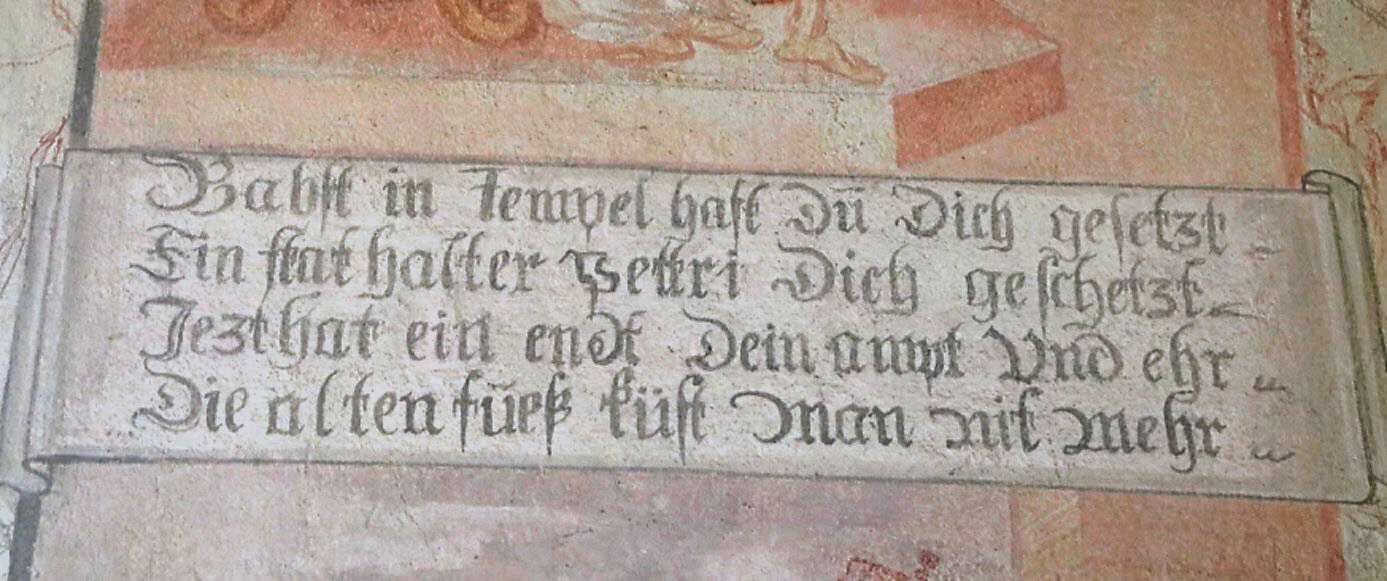 Babst in Tempel hast Dū Dich gesetzt
Ein stathalter Pettri Dich geschetzt
Jezt hat ein endt Dein ampt Vnd ehr
Die alten fūeß küst man nit mehr